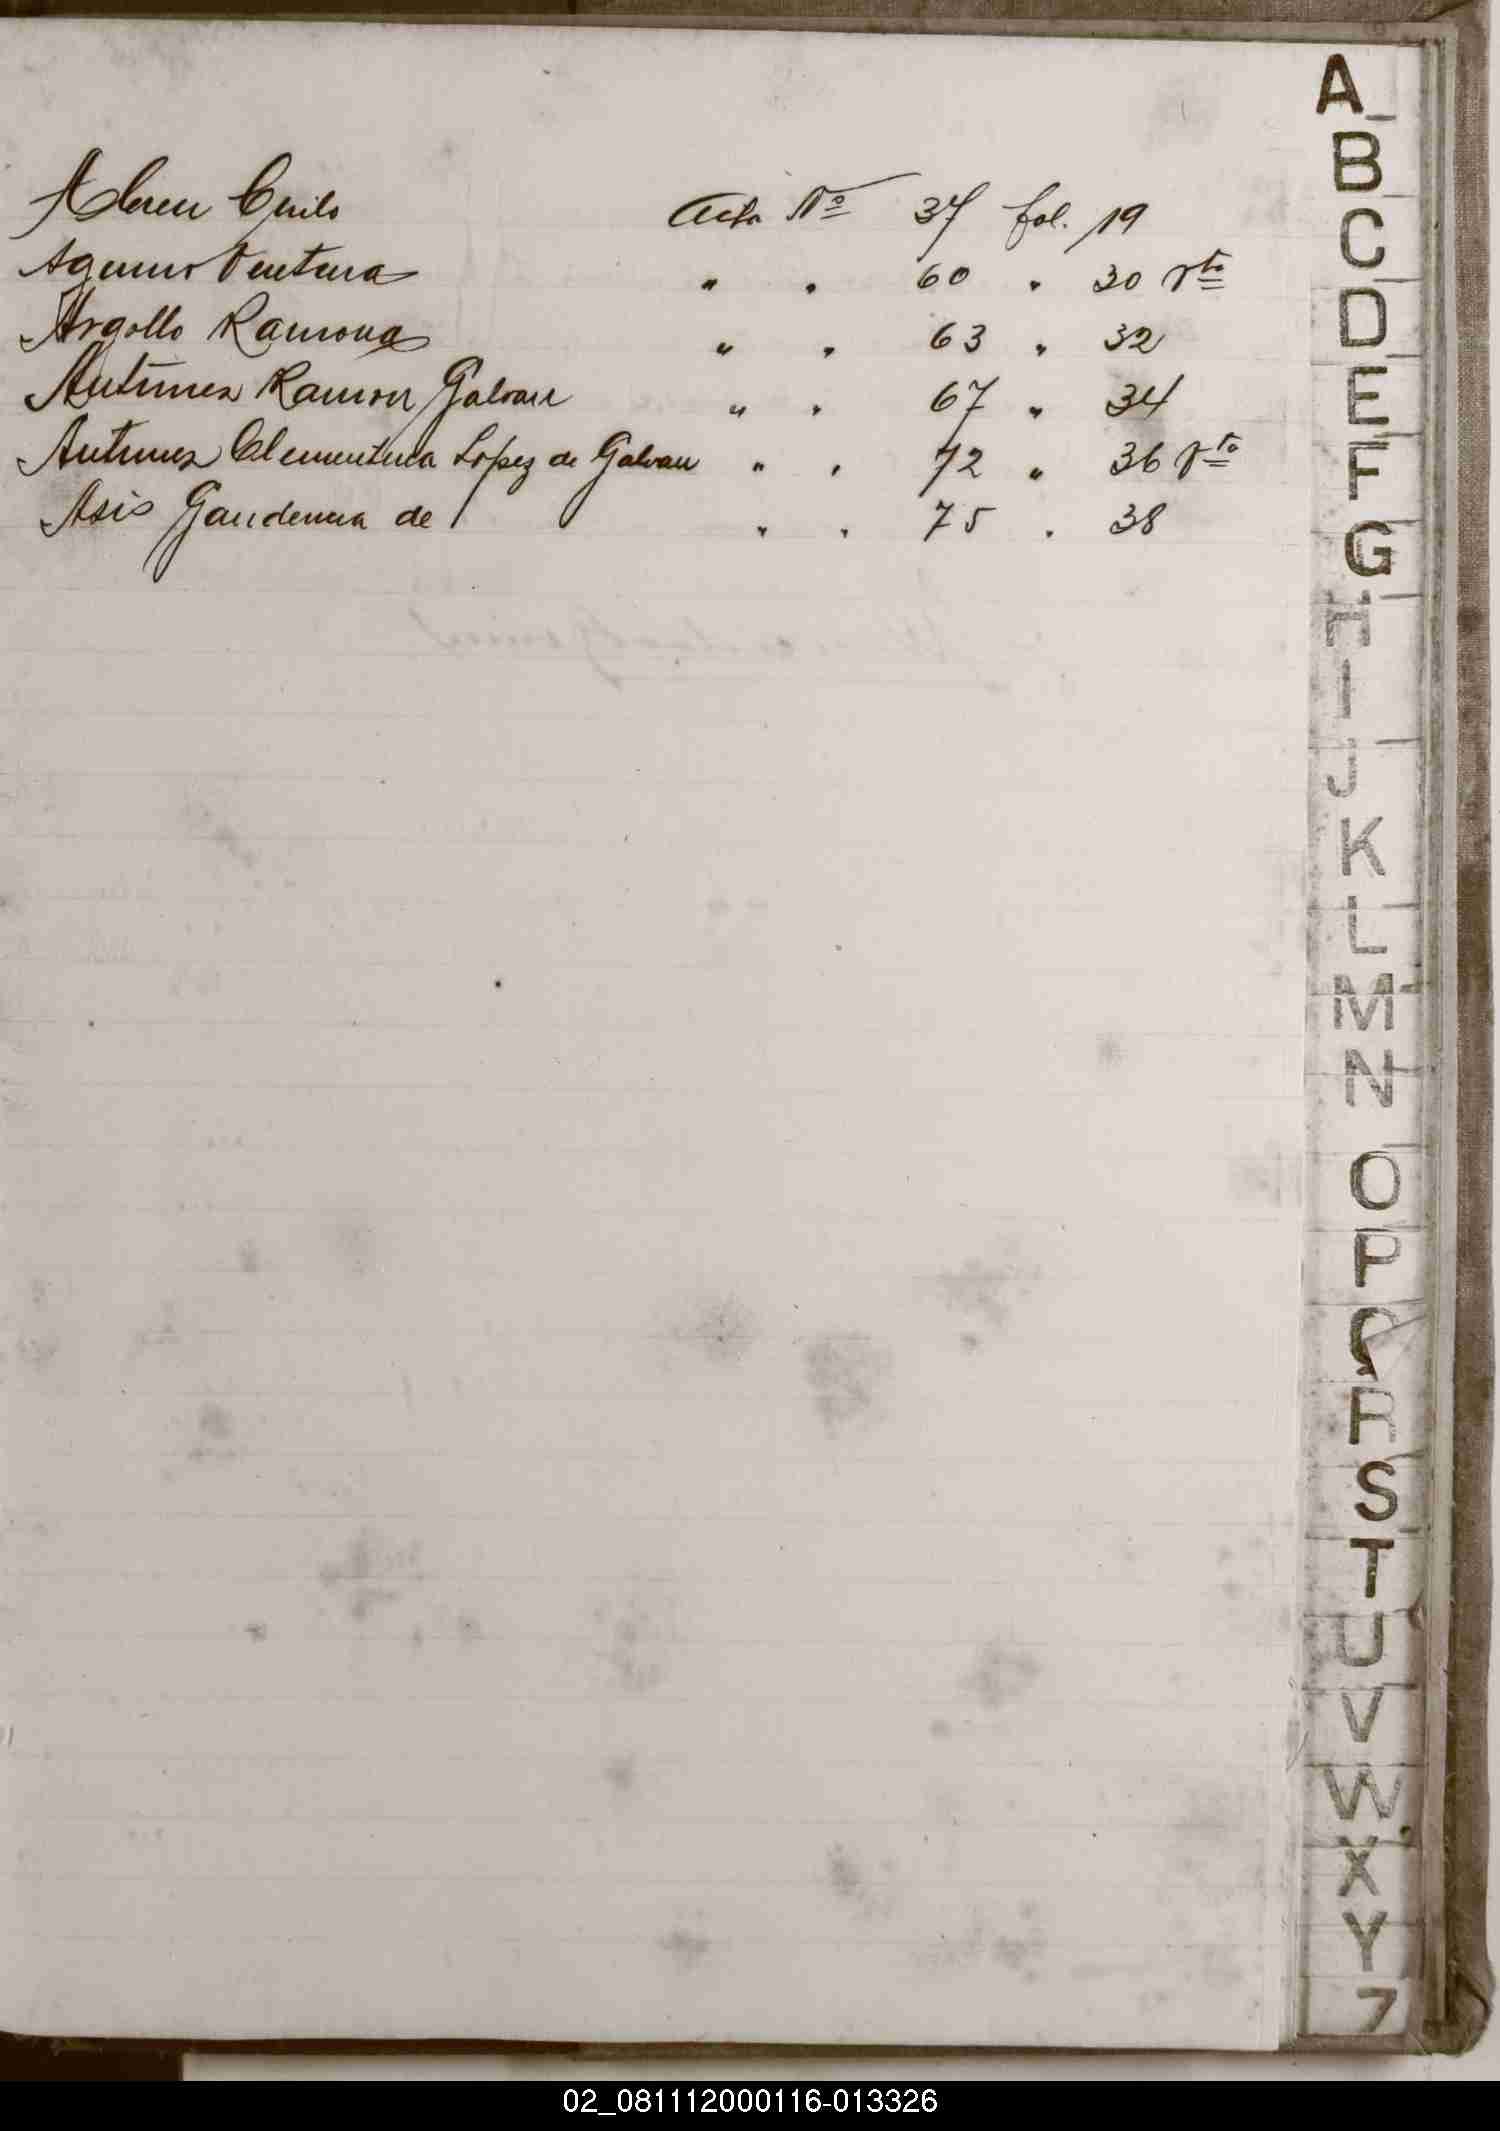 Abreu Cirilo Acta Nº 37 fol. 19
Aguero Ventura " " 60 " 30 vto
Argollo Ramona " " 63 " 32
Antunez Ramon Galvan " " 67 " 34
Antunez Clementina Lopez de Galvan " " 72 " 36 vto
Asis Gaudencia de " " 75 " 38
A
B
C
D
E
F
G
H
I
J
K
L
M
N
O
P
Q
R
S
T
U
V
W
X
Y
Z
02_081112000116-013326